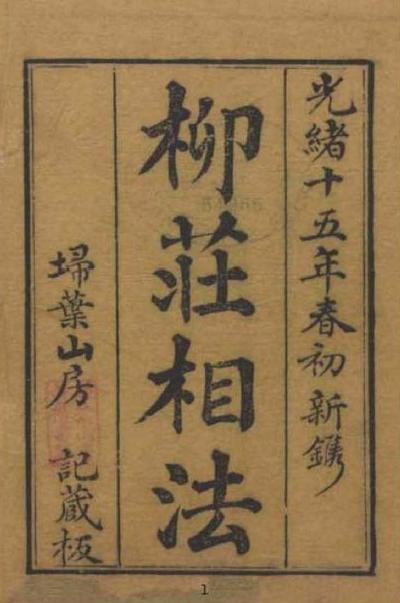 光緒十五年春初新鐫
柳莊相法
埽葉山房記藏板
1